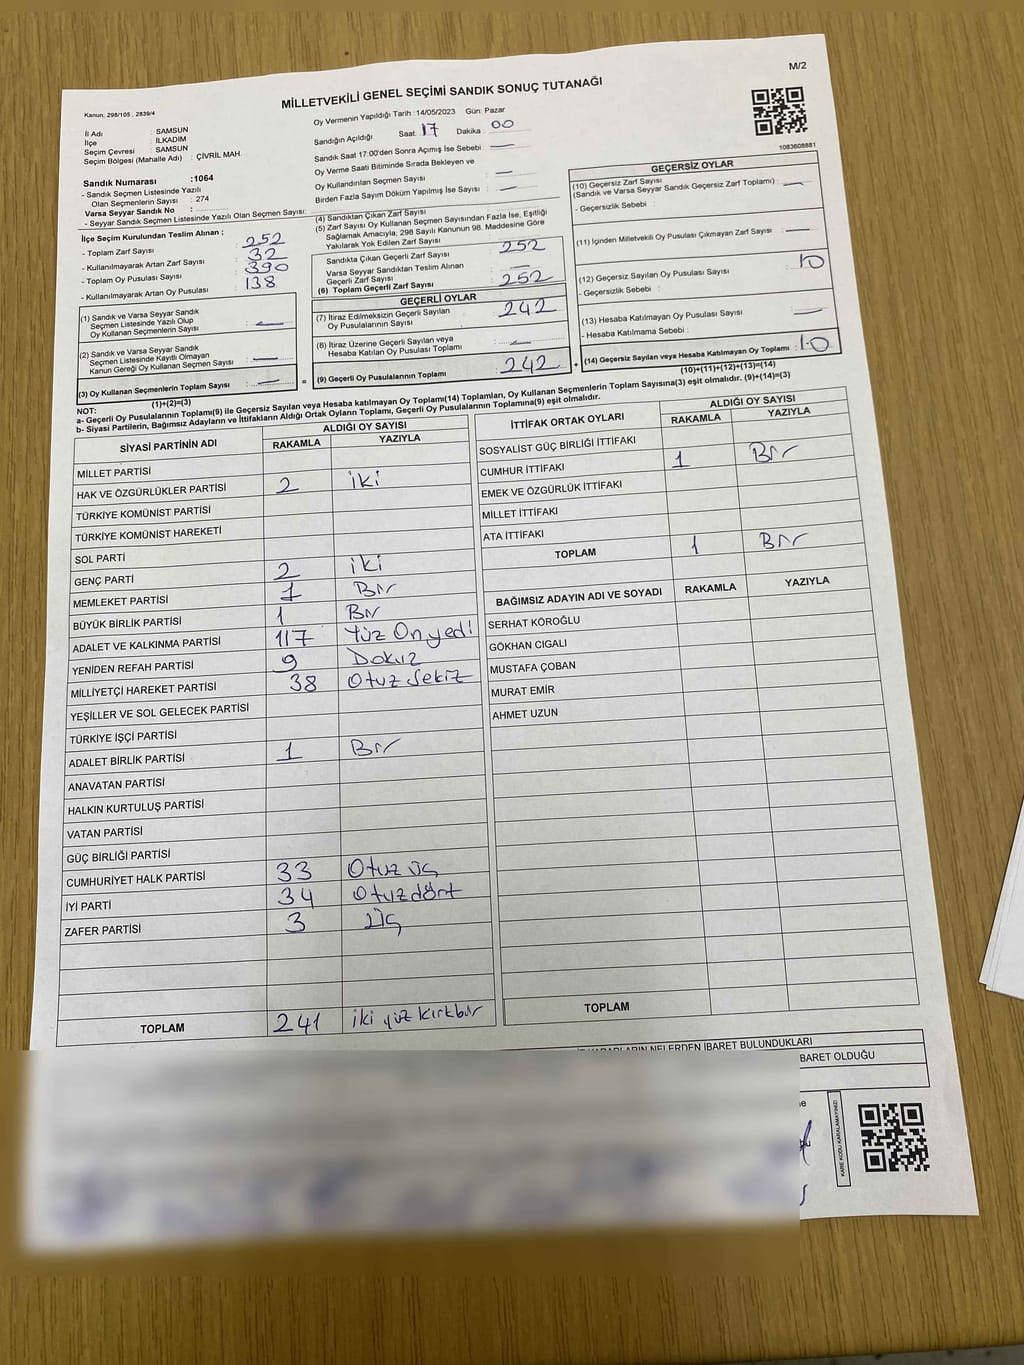 M/2
MİLLETVEKİLİ GENEL SEÇİMİ SANDIK SONUÇ TUTANAĞI
Kanun; 298/105 , 2839/4
Oy Vermenin Yapıldığı Tarih : 14/05/2023 Gün: Pazar
İl Adı : SAMSUN
İlçe : İLKADIM
Seçim Çevresi : SAMSUN
Seçim Bölgesi (Mahalle Adı) : ÇİVRİL MAH.
Sandık Numarası :1064
- Sandık Seçmen Listesinde Yazılı
Olan Seçmenlerin Sayısı : 274
Varsa Seyyar Sandık No :
- Seyyar Sandık Seçmen Listesinde Yazılı Olan Seçmen Sayısı:
Sandığın Açıldığı Saat: 17 Dakika : 00
Sandık Saat 17:00'den Sonra Açımış İse Sebebi : —
Oy Verme Saati Bitiminde Sırada Bekleyen ve
Oy Kullandırılan Seçmen Sayısı : —
Birden Fazla Sayım Döküm Yapılmış İse Sayısı : —
1083608881
İlçe Seçim Kurulundan Teslim Alınan ;
- Toplam Zarf Sayısı : 252
- Kullanılmayarak Artan Zarf Sayısı : 32
- Toplam Oy Pusulası Sayısı : 390
- Kullanılmayarak Artan Oy Pusulası : 138
(1) Sandık ve Varsa Seyyar Sandık
Seçmen Listesinde Yazılı Olup
Oy Kullanan Seçmenlerin Sayısı : —
(2) Sandık ve Varsa Seyyar Sandık
Seçmen Listesinde Kayıtlı Olmayan
Kanun Gereği Oy Kullanan Seçmen Sayısı : —
(3) Oy Kullanan Seçmenlerin Toplam Sayısı : —
(1)+(2)=(3)
(4) Sandıktan Çıkan Zarf Sayısı :
(5) Zarf Sayısı Oy Kullanan Seçmen Sayısından Fazla İse, Eşitliği
Sağlamak Amacıyla, 298 Sayılı Kanunun 98. Maddesine Göre
Yakılarak Yok Edilen Zarf Sayısı :
Sandıkta Çıkan Geçerli Zarf Sayısı : 252
Varsa Seyyar Sandıktan Teslim Alınan
Geçerli Zarf Sayısı : —
(6) Toplam Geçerli Zarf Sayısı : 252
GEÇERLİ OYLAR
(7) İtiraz Edilmeksizin Geçerli Sayılan
Oy Pusulalarının Sayısı : 242
(8) İtiraz Üzerine Geçerli Sayılan veya
Hesaba Katılan Oy Pusulası Toplamı : —
= (9) Geçerli Oy Pusulalarının Toplamı : 242
GEÇERSİZ OYLAR
(10) Geçersiz Zarf Sayısı
(Sandık ve Varsa Seyyar Sandık Geçersiz Zarf Toplamı) : —
- Geçersizlik Sebebi :
(11) İçinden Milletvekili Oy Pusulası Çıkmayan Zarf Sayısı : —
(12) Geçersiz Sayılan Oy Pusulası Sayısı : 10
- Geçersizlik Sebebi :
(13) Hesaba Katılmayan Oy Pusulası Sayısı : —
- Hesaba Katılmama Sebebi :
+ (14) Geçersiz Sayılan veya Hesaba Katılmayan Oy Toplamı : 10
(10)+(11)+(12)+(13)=(14)
NOT:
a- Geçerli Oy Pusulalarının Toplamı(9) ile Geçersiz Sayılan veya Hesaba katılmayan Oy Toplamı(14) Toplamları, Oy Kullanan Seçmenlerin Toplam Sayısına(3) eşit olmalıdır. (9)+(14)=(3)
b- Siyasi Partilerin, Bağımsız Adayların ve İttifakların Aldığı Ortak Oyların Toplamı, Geçerli Oy Pusulalarının Toplamına(9) eşit olmalıdır.
SİYASİ PARTİNİN ADI ALDIĞI OY SAYISI
RAKAMLA YAZIYLA
MİLLET PARTİSİ
HAK VE ÖZGÜRLÜKLER PARTİSİ 2 iki
TÜRKİYE KOMÜNİST PARTİSİ
TÜRKİYE KOMÜNİST HAREKETİ
SOL PARTİ
GENÇ PARTİ 2 iki
MEMLEKET PARTİSİ 1 Bir
BÜYÜK BİRLİK PARTİSİ 1 Bir
ADALET VE KALKINMA PARTİSİ 117 Yüz On yedi
YENİDEN REFAH PARTİSİ 9 Dokuz
MİLLİYETÇİ HAREKET PARTİSİ 38 Otuz Sekiz
YEŞİLLER VE SOL GELECEK PARTİSİ
TÜRKİYE İŞÇİ PARTİSİ
ADALET BİRLİK PARTİSİ 1 Bir
ANAVATAN PARTİSİ
HALKIN KURTULUŞ PARTİSİ
VATAN PARTİSİ
GÜÇ BİRLİĞİ PARTİSİ
CUMHURİYET HALK PARTİSİ 33 Otuz üç
İYİ PARTİ 34 Otuz dört
ZAFER PARTİSİ 3 Üç
TOPLAM 241 iki yüz kırkbir
İTTİFAK ORTAK OYLARI ALDIĞI OY SAYISI
RAKAMLA YAZIYLA
SOSYALİST GÜÇ BİRLİĞİ İTTİFAKI
CUMHUR İTTİFAKI 1 Bir
EMEK VE ÖZGÜRLÜK İTTİFAKI
MİLLET İTTİFAKI
ATA İTTİFAKI
TOPLAM 1 Bir
BAĞIMSIZ ADAYIN ADI VE SOYADI RAKAMLA YAZIYLA
SERHAT KÖROĞLU
GÖKHAN CIGALI
MUSTAFA ÇOBAN
MURAT EMİR
AHMET UZUN
TOPLAM
KARARLARIN NELERDEN İBARET BULUNDUKLARI
BARET OLDUĞU
KARE KODU KARALAMAYINIZ!